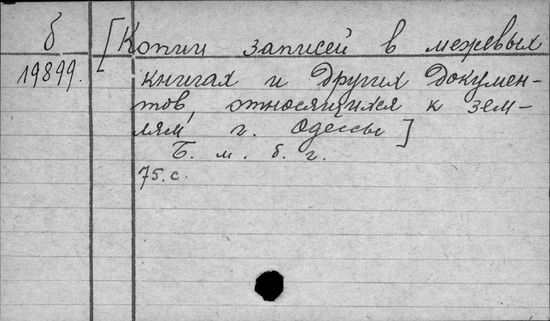 б
19899.
[Копии записей в межевых
книгах и других докумен-
тов, относящихся к зем-
лям, г. Одессы]
Б. м. б. г.
75.с.